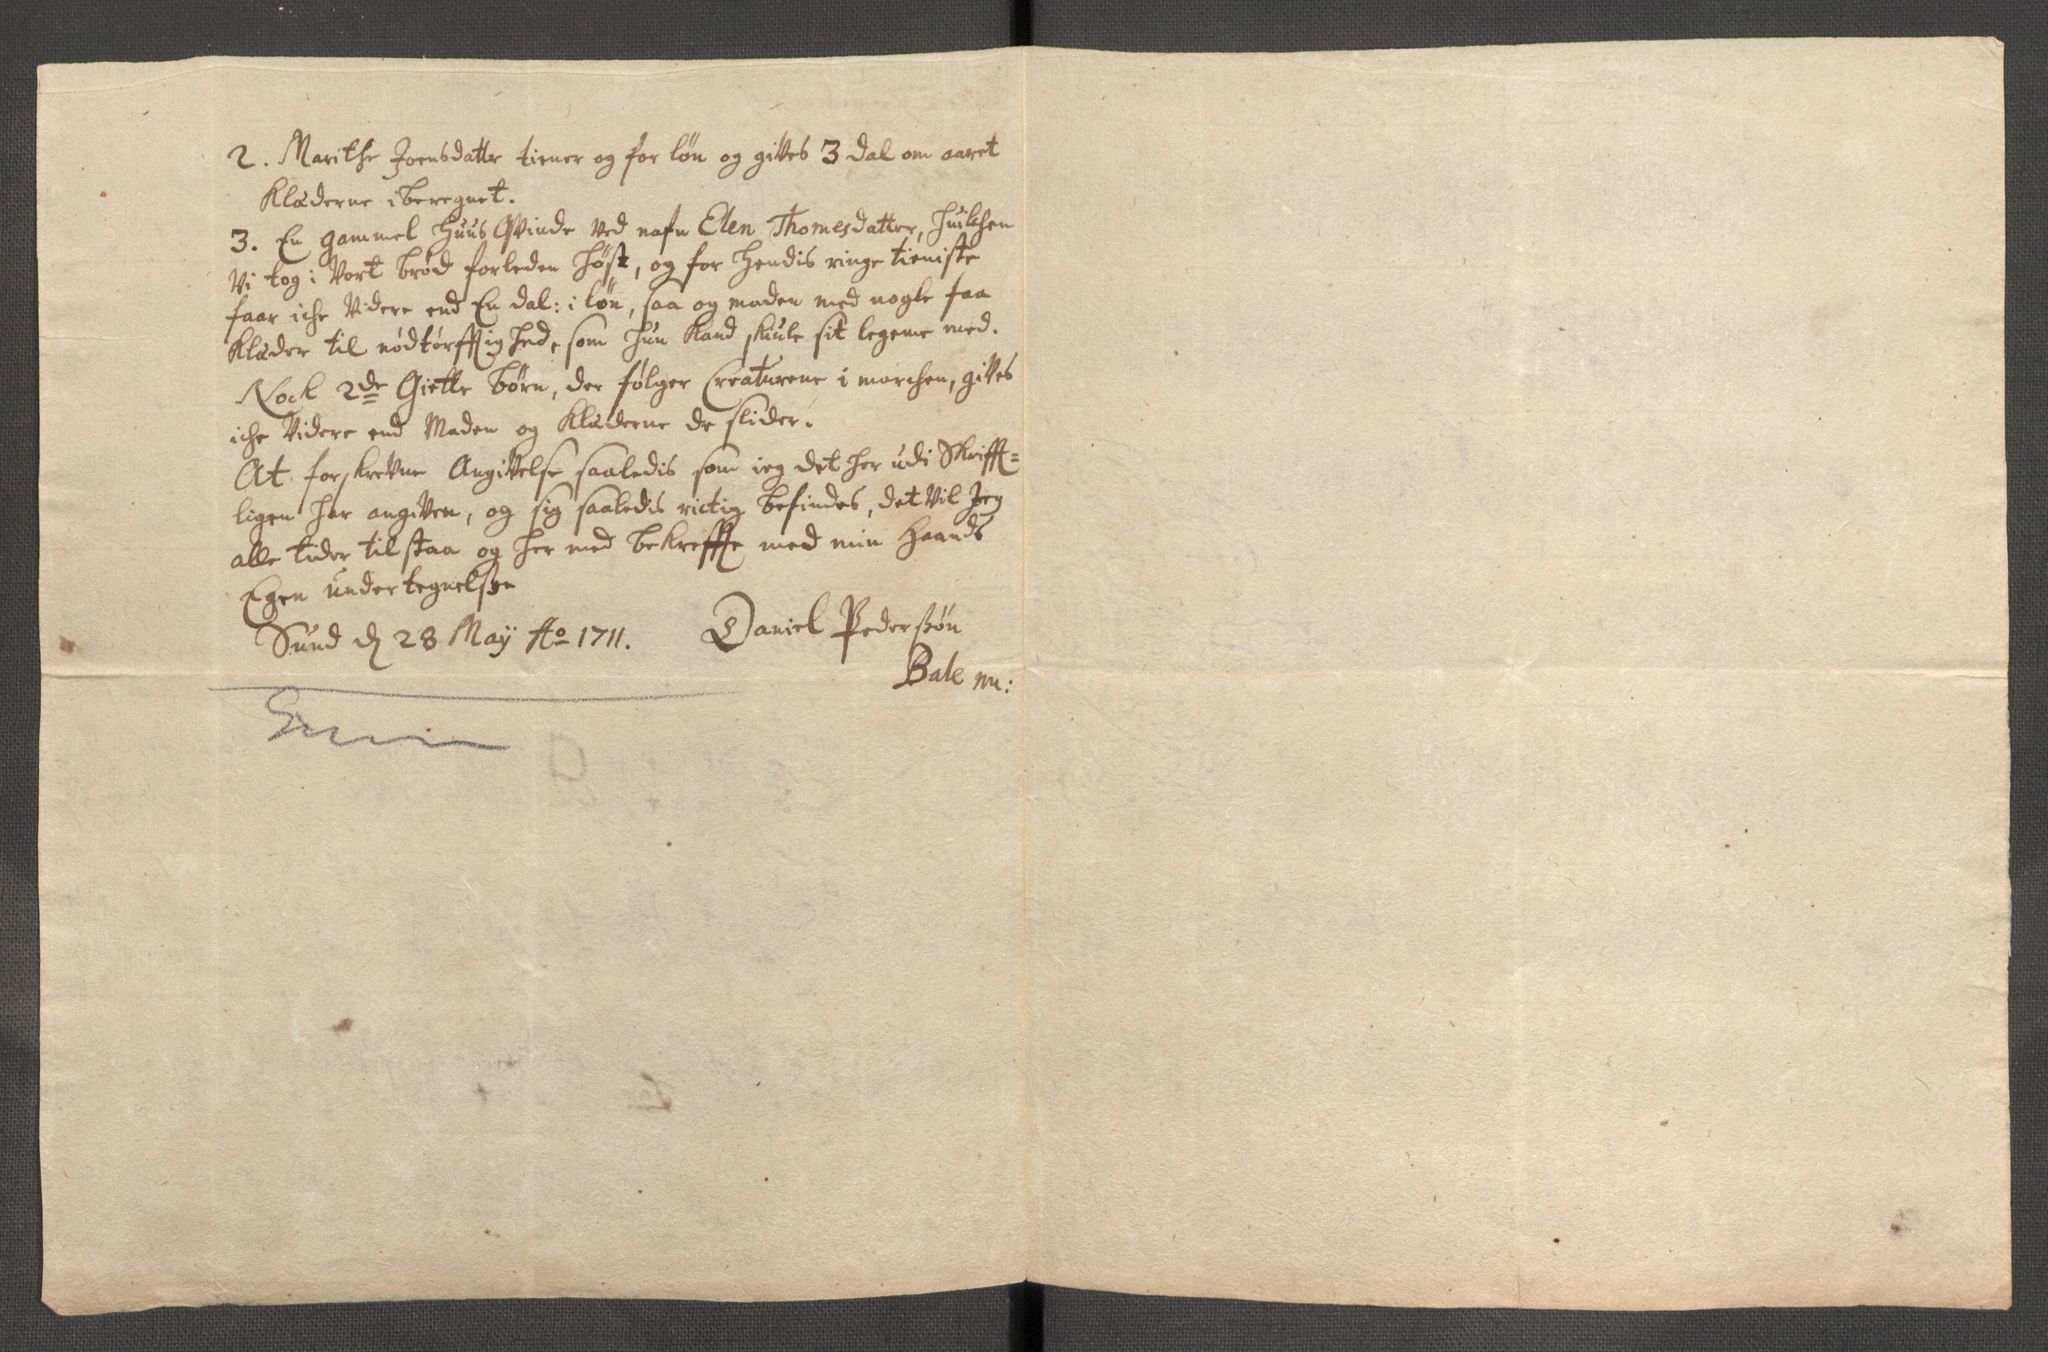 2. Marithe Joensdatter tiener og for løn og gives 3 dal om aaret
Klæderne iberegnet.
3. En gammel Huus Qvinde ved nafn Elen Thomesdatter, huilchen
Vi tog i Vort brød forleden høst, og for hendis ringe tieniste
faar iche Videre end En dal: i løn, saa og maden med nogle faa
Klæder til nødtørfftighed, som hun kand skiule sit legeme med.
Nock 2de Giette børn, der følger Creaturene i marchen, gives
iche Videre end Maden og Klæderne de slider.
At forskrevne Angivelse saaledis som ieg det her udi Skrifft=
ligen har angiven, og sig saaledis rictig befindes, det Vil Jeg
alle tider til staa og her med bekreffte med min Haands
Egen undertegnelse
Sund d 28 Maÿ Ao 1711. Daniel Pederssøn